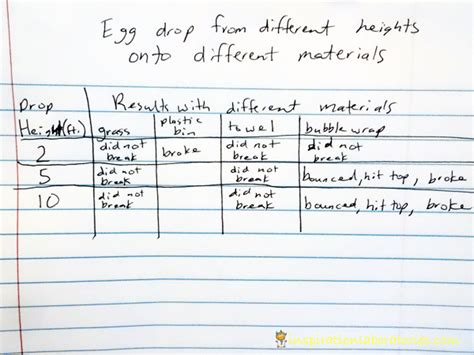 Egg drop from different heights
onto different materials
Drop Height (ft.) Results with different materials
grass plastic bin towel bubble wrap
2 did not break broke did not break did not break
5 did not break did not break bounced, hit top, broke
10 did not break did not break bounced, hit top, broke
inspirationlaboratories.com